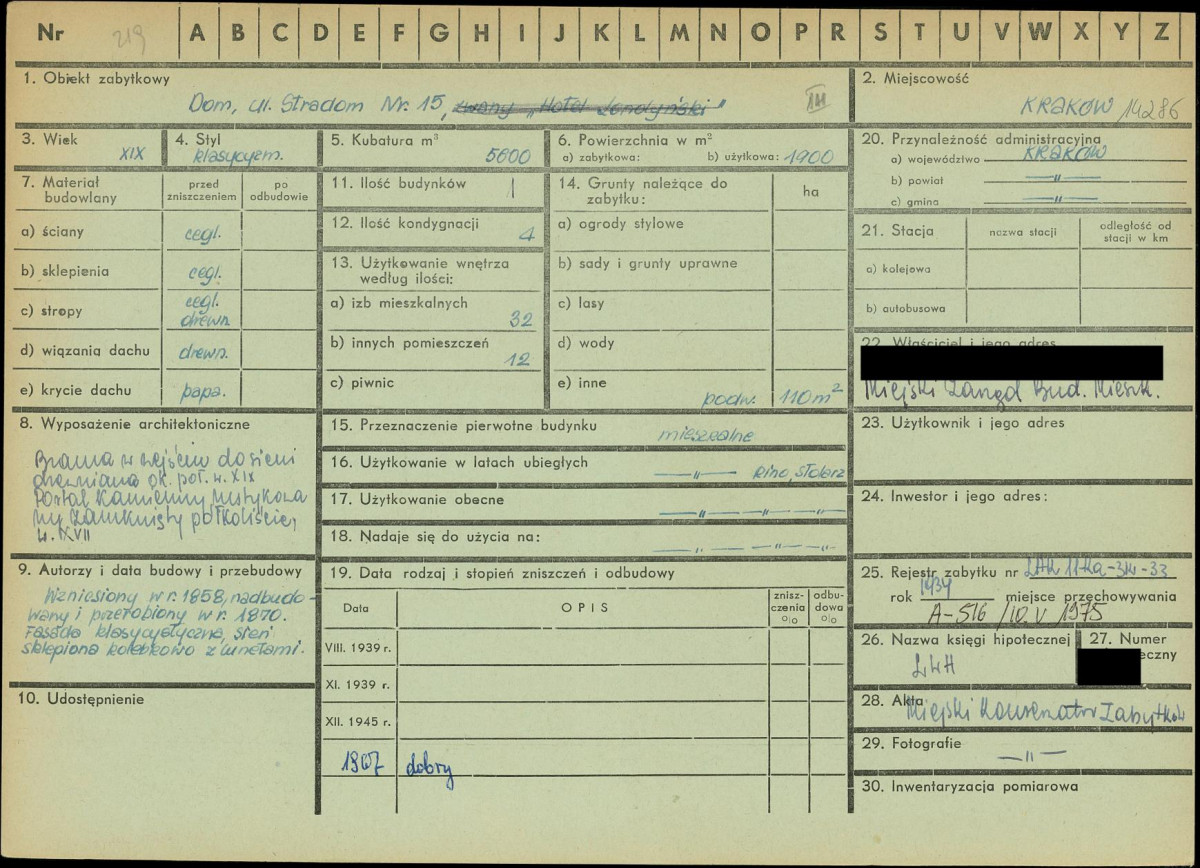 Nr 219 A B C D E F G H I J K L M N O P R S T U V W X Y Z
1. Obiekt zabytkowy
Dom, ul. Stradom Nr. 15, zwany „Hotel Londyński"
III
2. Miejscowość
KRAKÓW 14286
3. Wiek
XIX
4. Styl
klasycyzm.
5. Kubatura m³
5600
6. Powierzchnia w m²
a) zabytkowa: b) użytkowa: 1900
7. Materiał budowlany
przed zniszczeniem
po odbudowie
a) ściany cegl.
b) sklepienia cegl.
c) stropy cegl. drewn.
d) wiązania dachu drewn.
e) krycie dachu papa.
8. Wyposażenie architektoniczne
Brama w wejściu do sieni
drewniana ok. poł. w. XIX
Portal kamienny rustykowa
ny zamknięty półkoliście,
w. XVII
9. Autorzy i data budowy i przebudowy
Wzniesiony w r. 1858, nadbudo-
wany i przerobiony w r. 1870.
Fasada klasycystyczna, sień
sklepiona kolebkowo z lunetami.
10. Udostępnienie
11. Ilość budynków 1
12. Ilość kondygnacji 4
13. Użytkowanie wnętrza
według ilości:
a) izb mieszkalnych
32
b) innych pomieszczeń
12
c) piwnic
14. Grunty należące do
zabytku:
ha
a) ogrody stylowe
b) sady i grunty uprawne
c) lasy
d) wody
e) inne
podw. 110 m²
15. Przeznaczenie pierwotne budynku mieszkalne
16. Użytkowanie w latach ubiegłych —"— kino, stolarz
17. Użytkowanie obecne —"— —"— —"—
18. Nadaje się do użycia na: —"— —"— —"—
19. Data rodzaj i stopień zniszczeń i odbudowy
Data
OPIS
znisz-
czenia
%
odbu-
dowa
%
VIII. 1939 r.
XI. 1939 r.
XII. 1945 r.
1967 dobry
20. Przynależność administracyjna
a) województwo KRAKÓW
b) powiat —"—
c) gmina —"—
21. Stacja
nazwa stacji
odległość od
stacji w km
a) kolejowa
b) autobusowa
22. Właściciel i jego adres
Miejski Zarząd Bud. Mieszk.
23. Użytkownik i jego adres
24. Inwestor i jego adres:
25. Rejestr zabytku nr
rok 1934 miejsce przechowywania
A-516 /10.V 1975
26. Nazwa księgi hipotecznej
LWH
27. Numer
eczny
28. Akta
Miejski Konserwator Zabytków
29. Fotografie
—"—
30. Inwentaryzacja pomiarowa